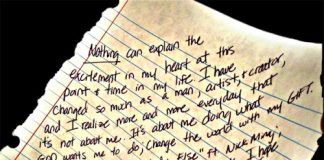 Nothing can explain the
excitement in my heart at this
point & time in my life. I have
changed so much as a man, artist, & creator,
and I realize more and more everyday that
its not about me. It's about me doing what my
God wants me to do; Change the world with my GIFT.
Else" ft Nicki Minaj,
I hope